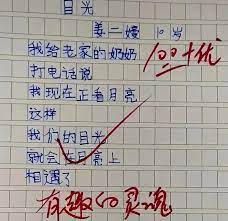 目光
姜二嫚 10岁
我给老家的奶奶
打电话说
我现在正看月亮
这样
我们的目光
就会在月亮上
相遇了
100+优
有趣的灵魂